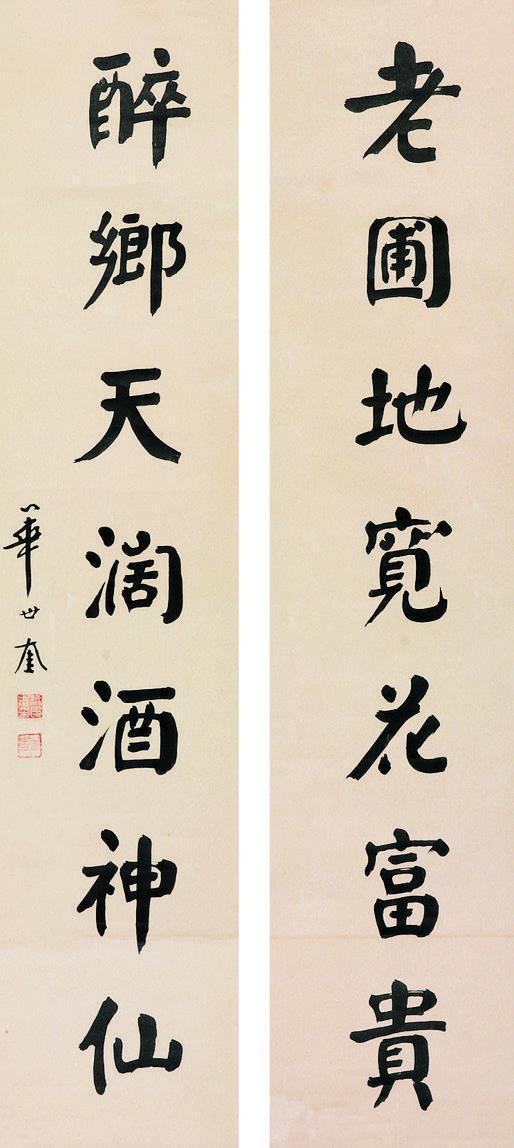 老圃地寬花富貴
醉鄉天濶酒神仙
華世奎